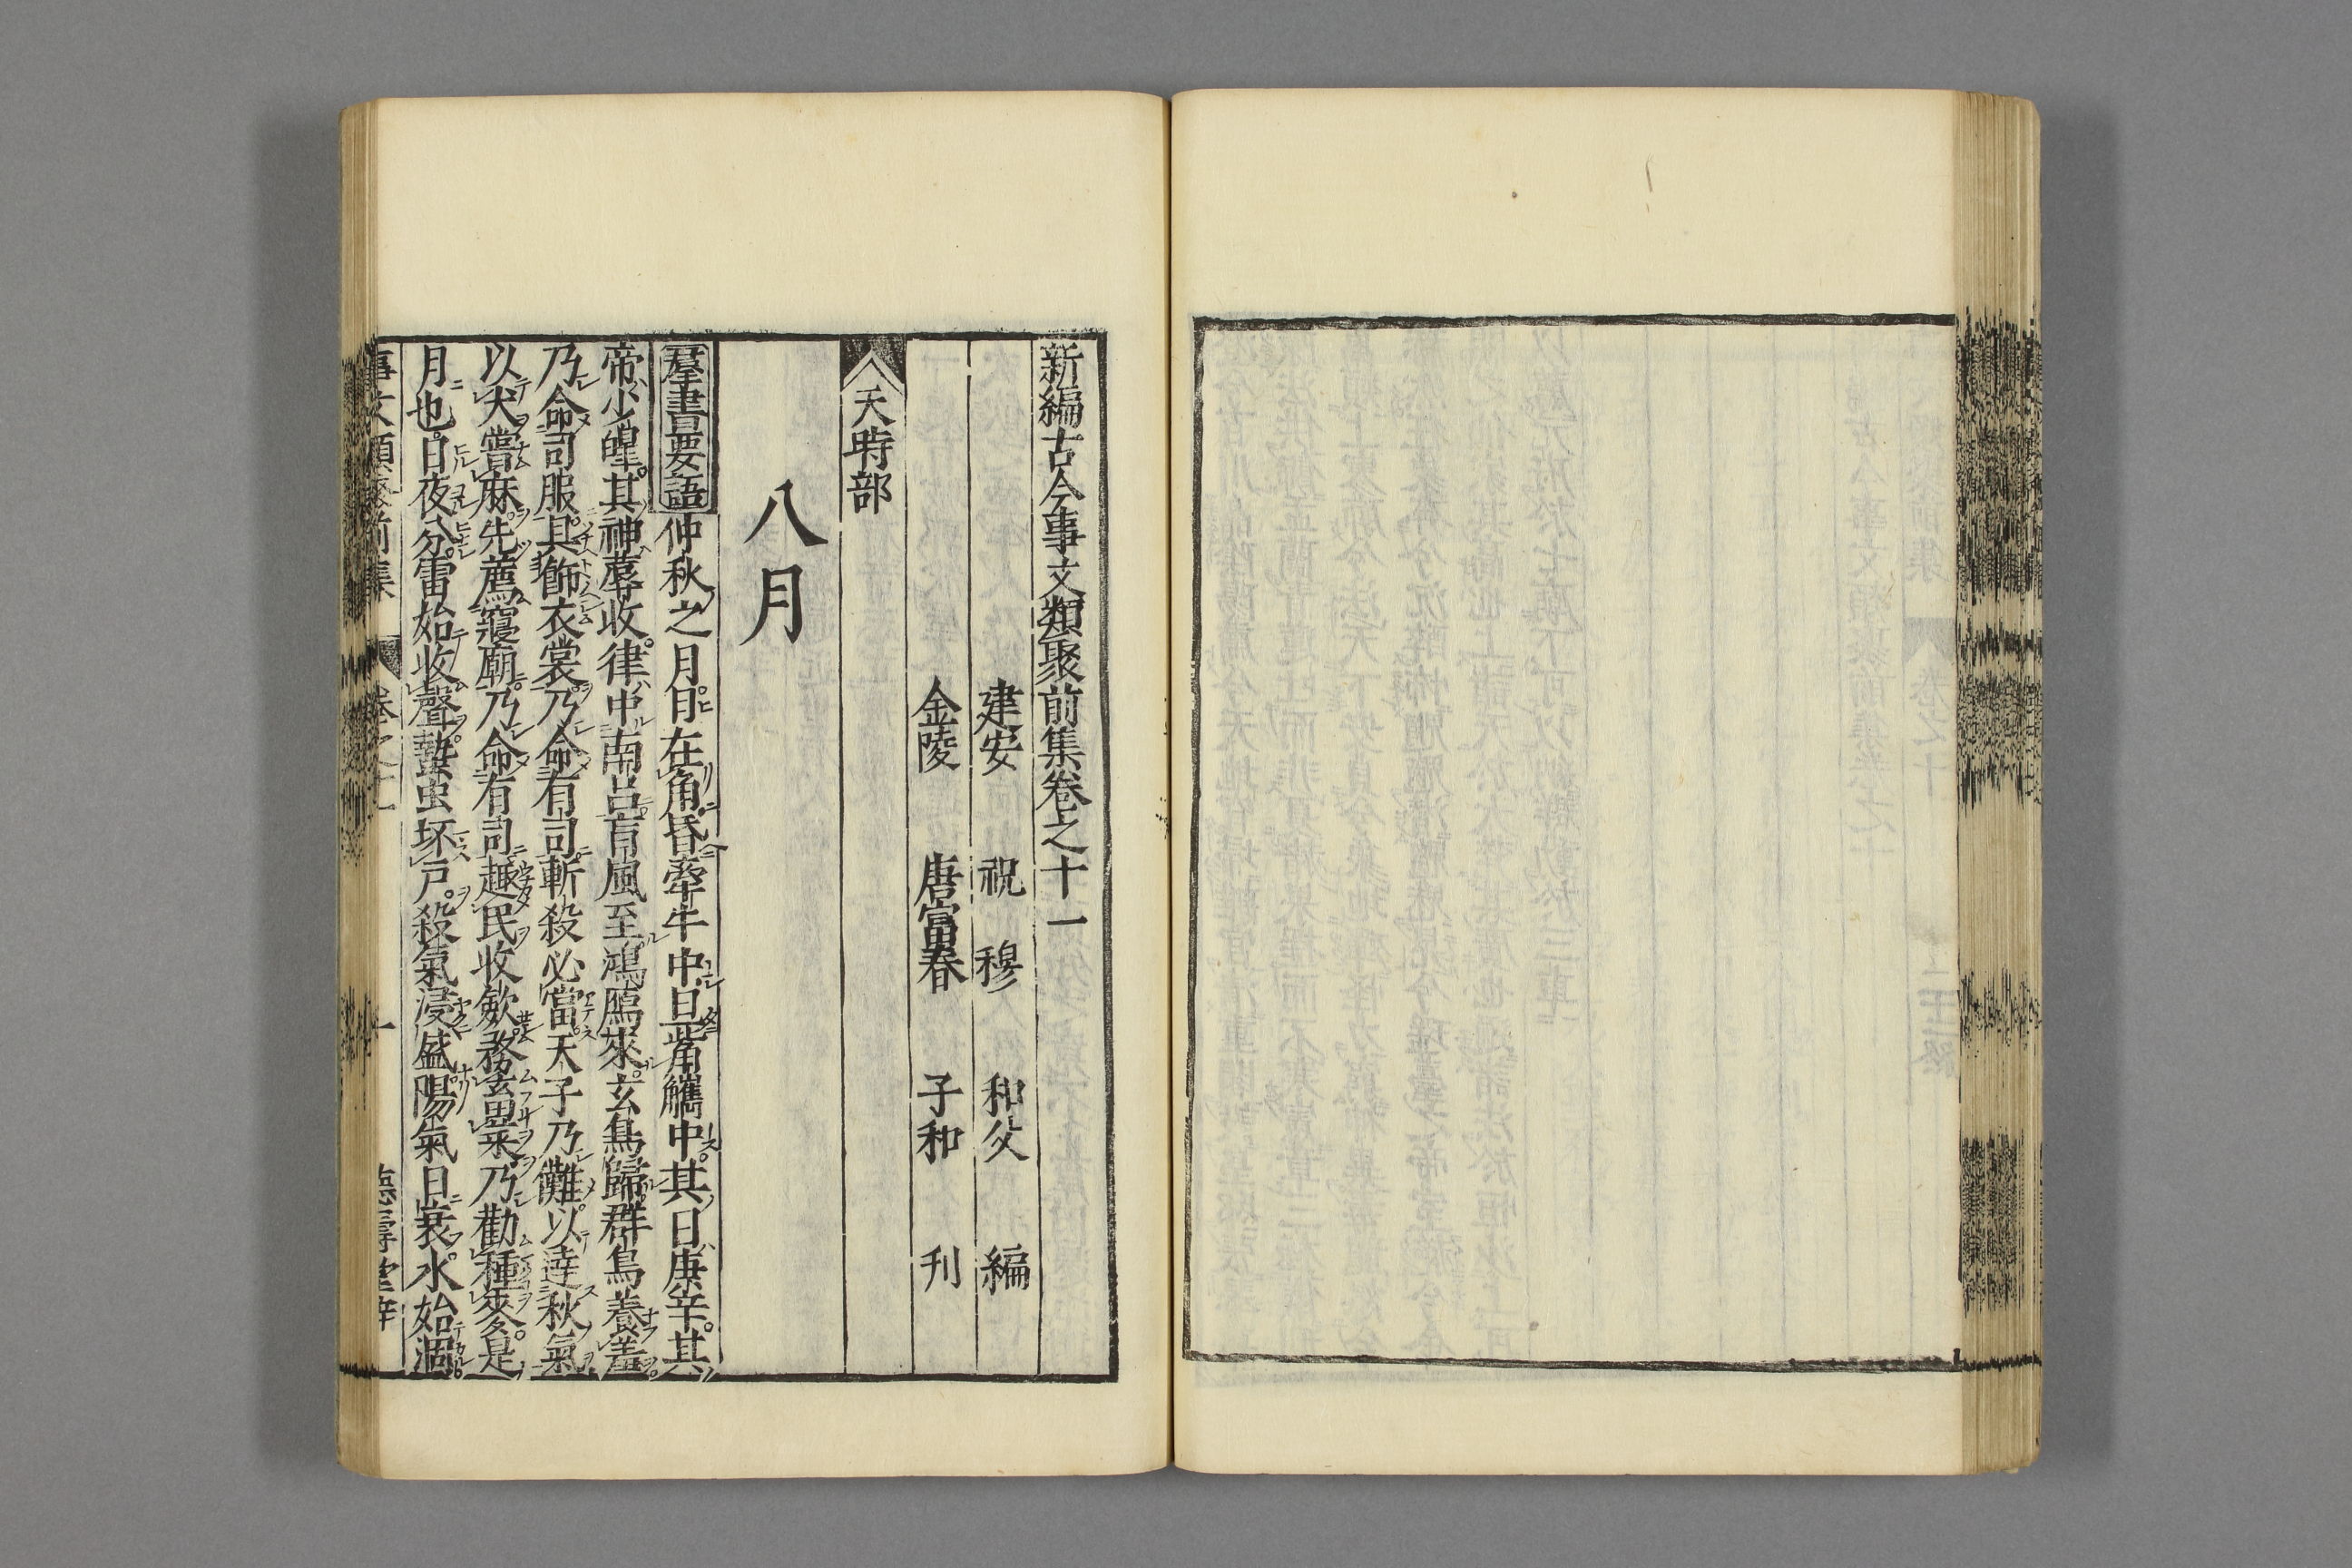 新編古今事文類聚前集卷之十一
建安 祝 穆 和父 編
金陵 唐富春 子和 刊
天時部
八月
羣書要語 仲秋之月日在角昏牽牛中旦觜觿中其日庚辛其
帝少皥其神蓐收律中南呂盲風至鴻鴈來玄鳥歸群鳥養羞
乃命司服具飭衣裳乃命有司斬殺必當天子乃難以達秋氣
以犬嘗麻先薦寢廟乃命有司趣民收斂務畜菜乃勸種麥是
月也日夜分雷始收聲蟄虫坏戶殺氣浸盛陽氣日衰水始涸
事文類聚前集 卷之十一 一 德壽堂梓